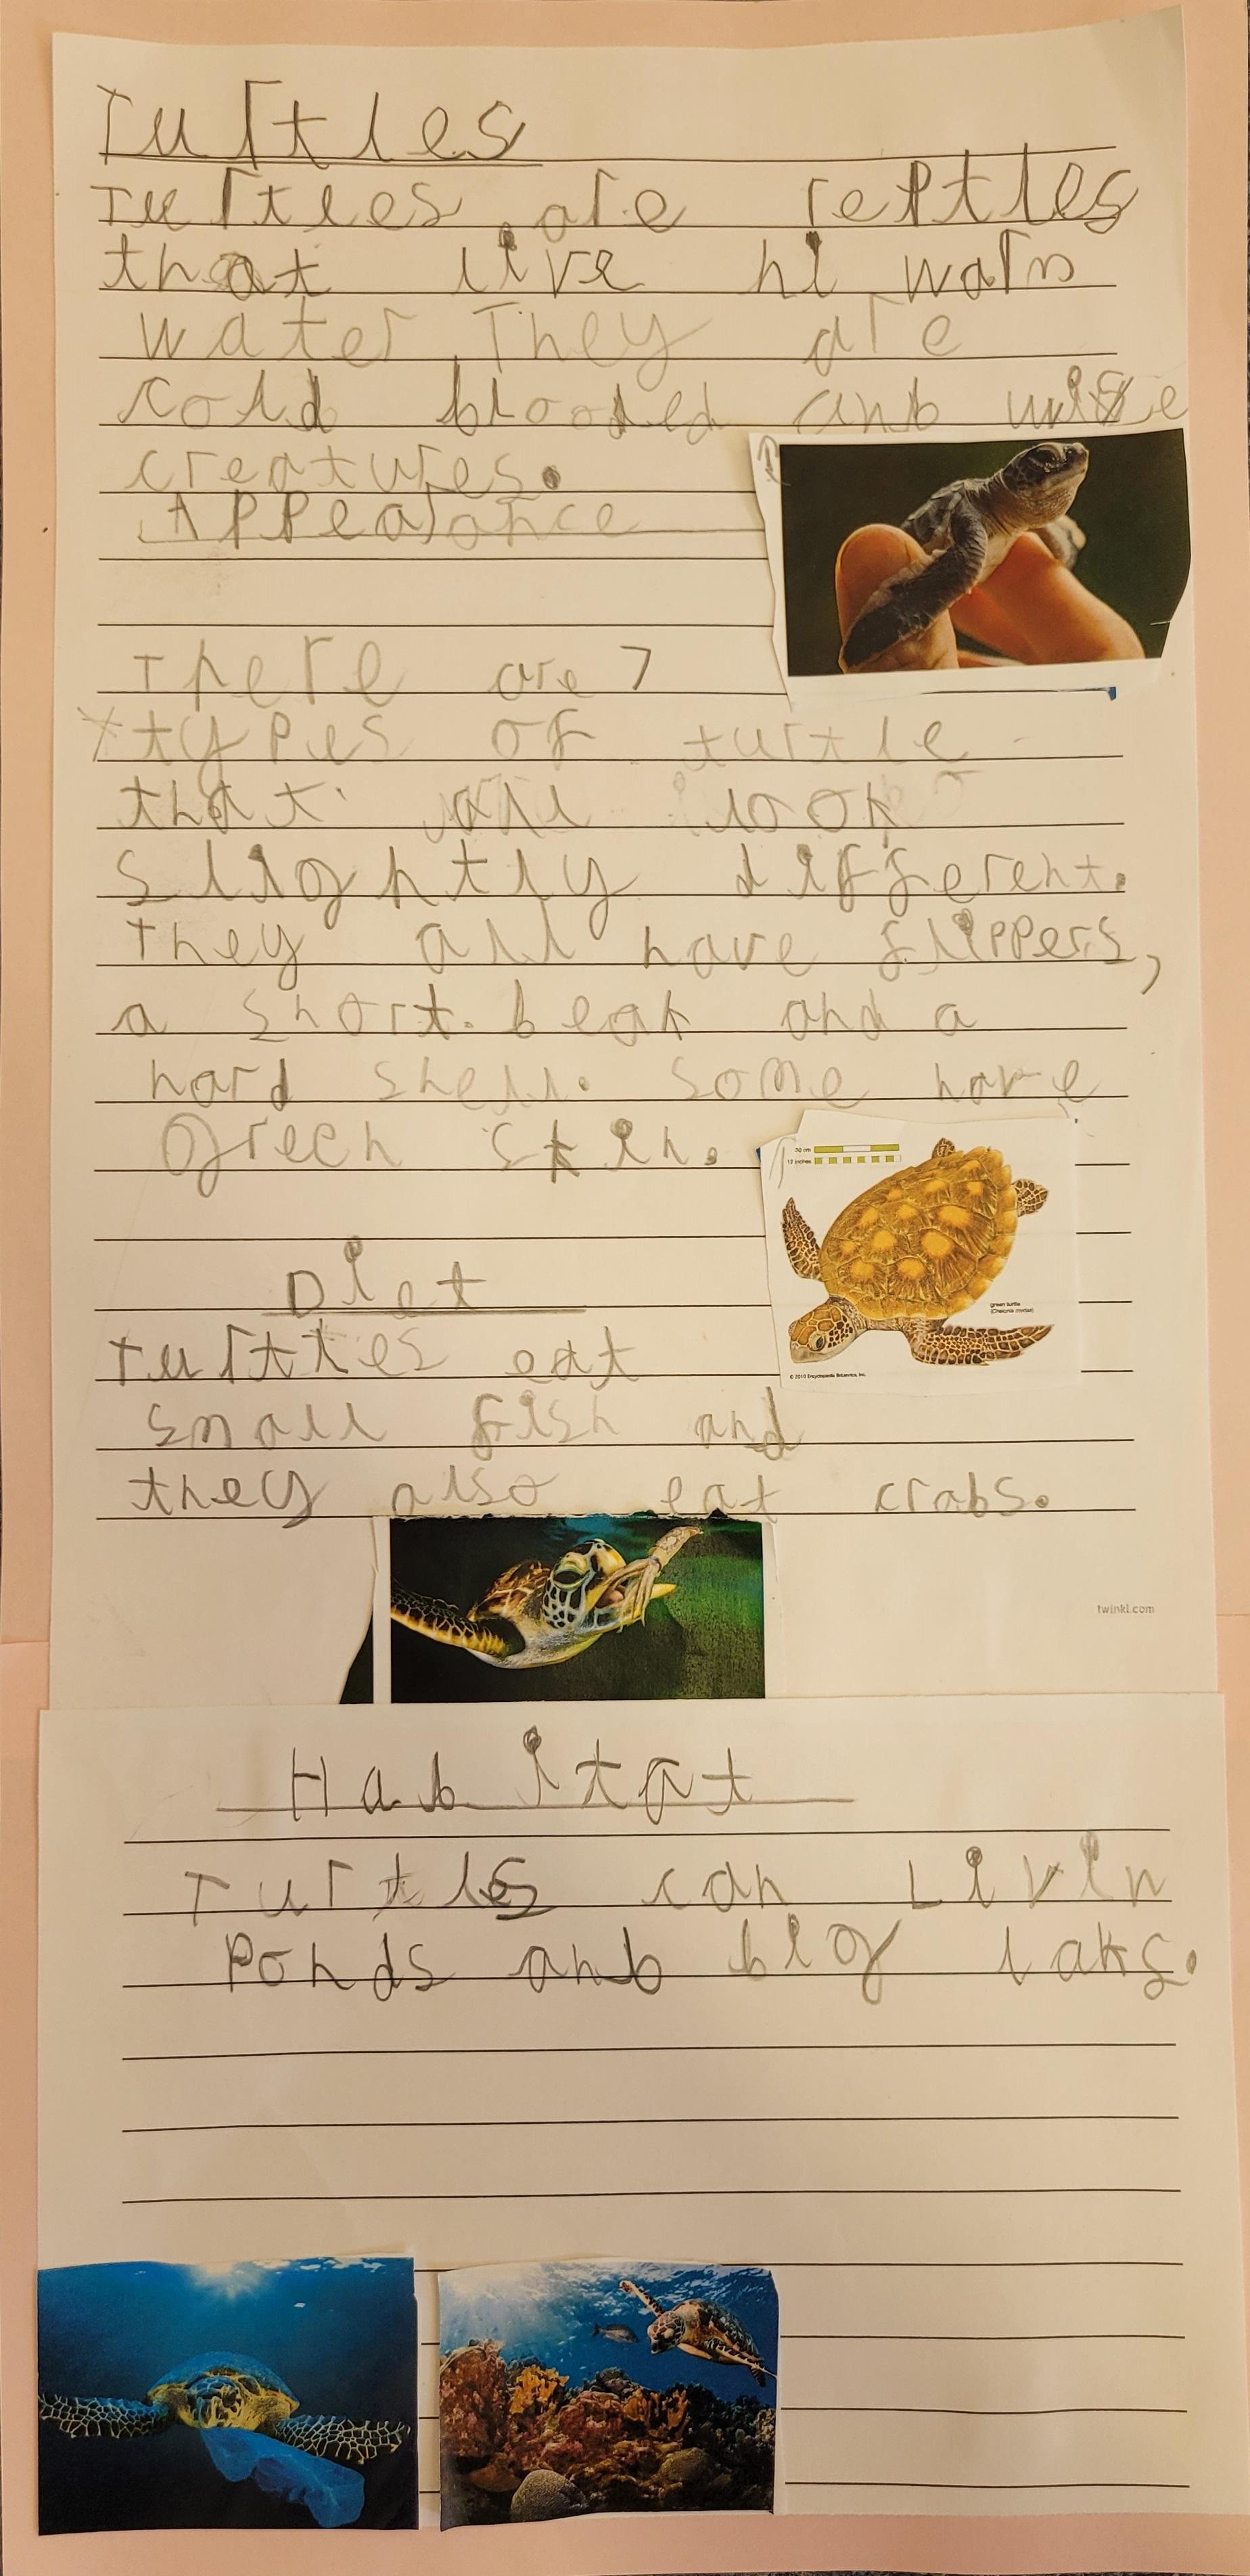 Turtles
Turtles are reptles
that live ni warm
water. They are
cold blooded anb wise
creatures.
Appearance
There are 7
types of turtle
that all look
slightly different.
They all have flippers,
a short beak and a
hard shell. some have
green skin.
30 cm
12 inches
green turtle
(Chelonia mydas)
© 2010 Encyclopædia Britannica, Inc.
Diet
Turttles eat
small fish and
they also eat crabs.
twinkl.com
Habitat
Turtles can Livin
Ponds anb big laks.